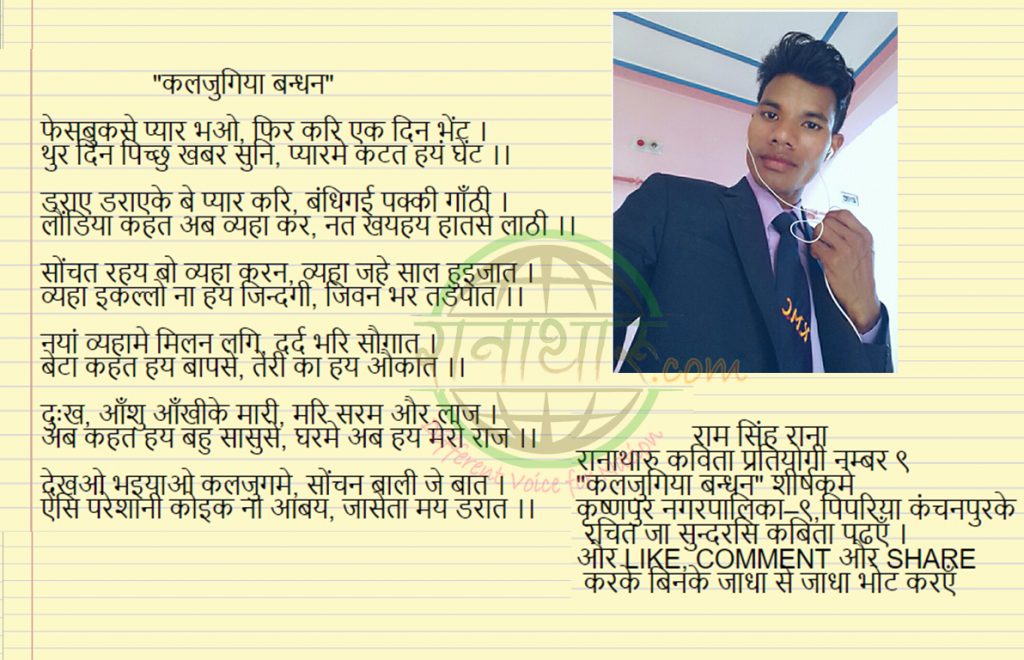 "कलजुगिया बन्धन"
फेसबुकसे प्यार भओ, फिर करि एक दिन भेंट ।
थुर दिन पिच्छु खबर सुनि, प्यारमे कटत हयं घेंट ।।
डराए डराएके बे प्यार करि, बंधिगई पक्की गाँठी ।
लौंडिया कहत अब व्यहा कर, नत खयहय हातसे लाठी ।।
सोंचत रहय बो व्यहा करन, व्यहा जहे साल हुइजात ।
व्यहा इकल्लो ना हय जिन्दगी, जिवन भर तडपात ।।
नयां व्यहामे मिलन लगि, दर्द भरि सौगात ।
बेटा कहत हय बापसे, तेरी का हय औकात ।।
दुःख, आँशु आँखीके मारी, मरि सरम और लाज ।
अब कहत हय बहु सासुसे, घरमे अब हय मेरो राज ।।
देखओ भइयाओ कलजुगमे, सोंचन बाली जे बात ।
ऐसि परेशानी कोइक ना आबय, जासेता मय डरात ।।
रानाथारु.com
Different Voice for Nation
KMC
राम सिंह राना
रानाथारु कविता प्रतियोगी नम्बर ९
"कलजुगिया बन्धन" शीर्षकमे
कृष्णपुर नगरपालिका–९,पिपरिया कंचनपुरके
रचित जा सुन्दरसि कबिता पढएँ ।
और LIKE, COMMENT और SHARE
करके बिनके जाधा से जाधा भोट करएँ